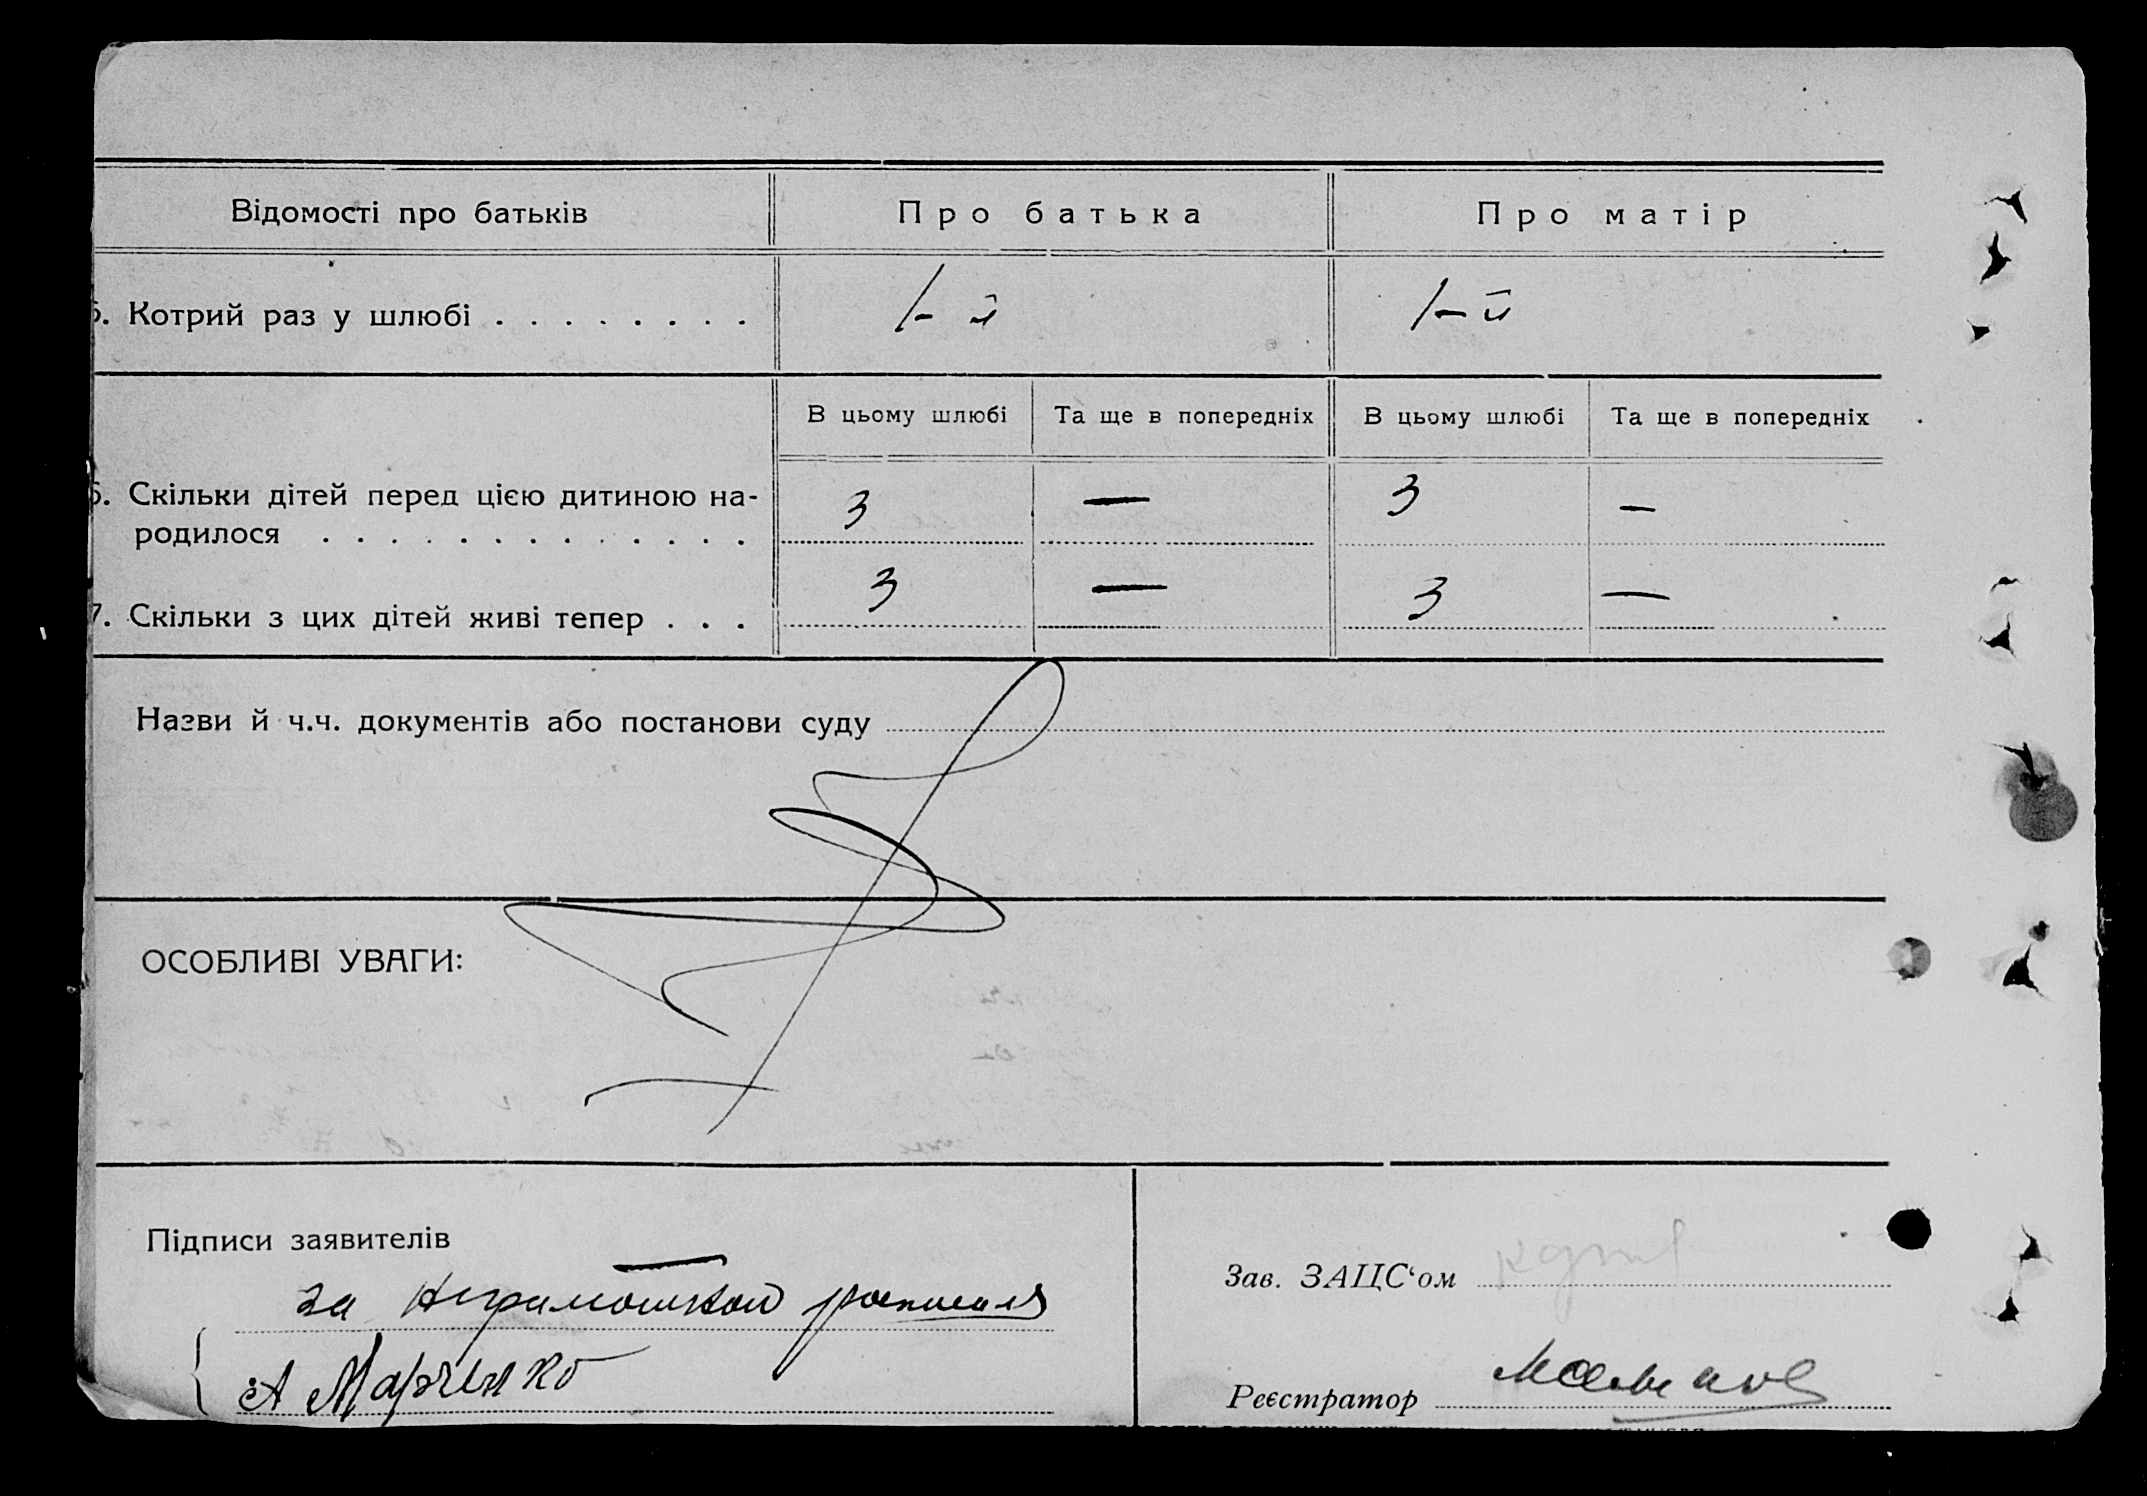 Відомості про батьків Про батька Про матір
5. Котрий раз у шлюбі . . . . . . . . 1-й 1-й
В цьому шлюбі Та ще в попередніх В цьому шлюбі Та ще в попередніх
6. Скільки дітей перед цією дитиною на- 3 — 3 —
родилося . . . . . . . . . . . . .
7. Скільки з цих дітей живі тепер . . . 3 — 3 —
Назви й ч.ч. документів або постанови суду
ОСОБЛИВІ УВАГИ:
Підписи заявителів
за
А Марченко
Зав. ЗАЦС‘ом
Реєстратор